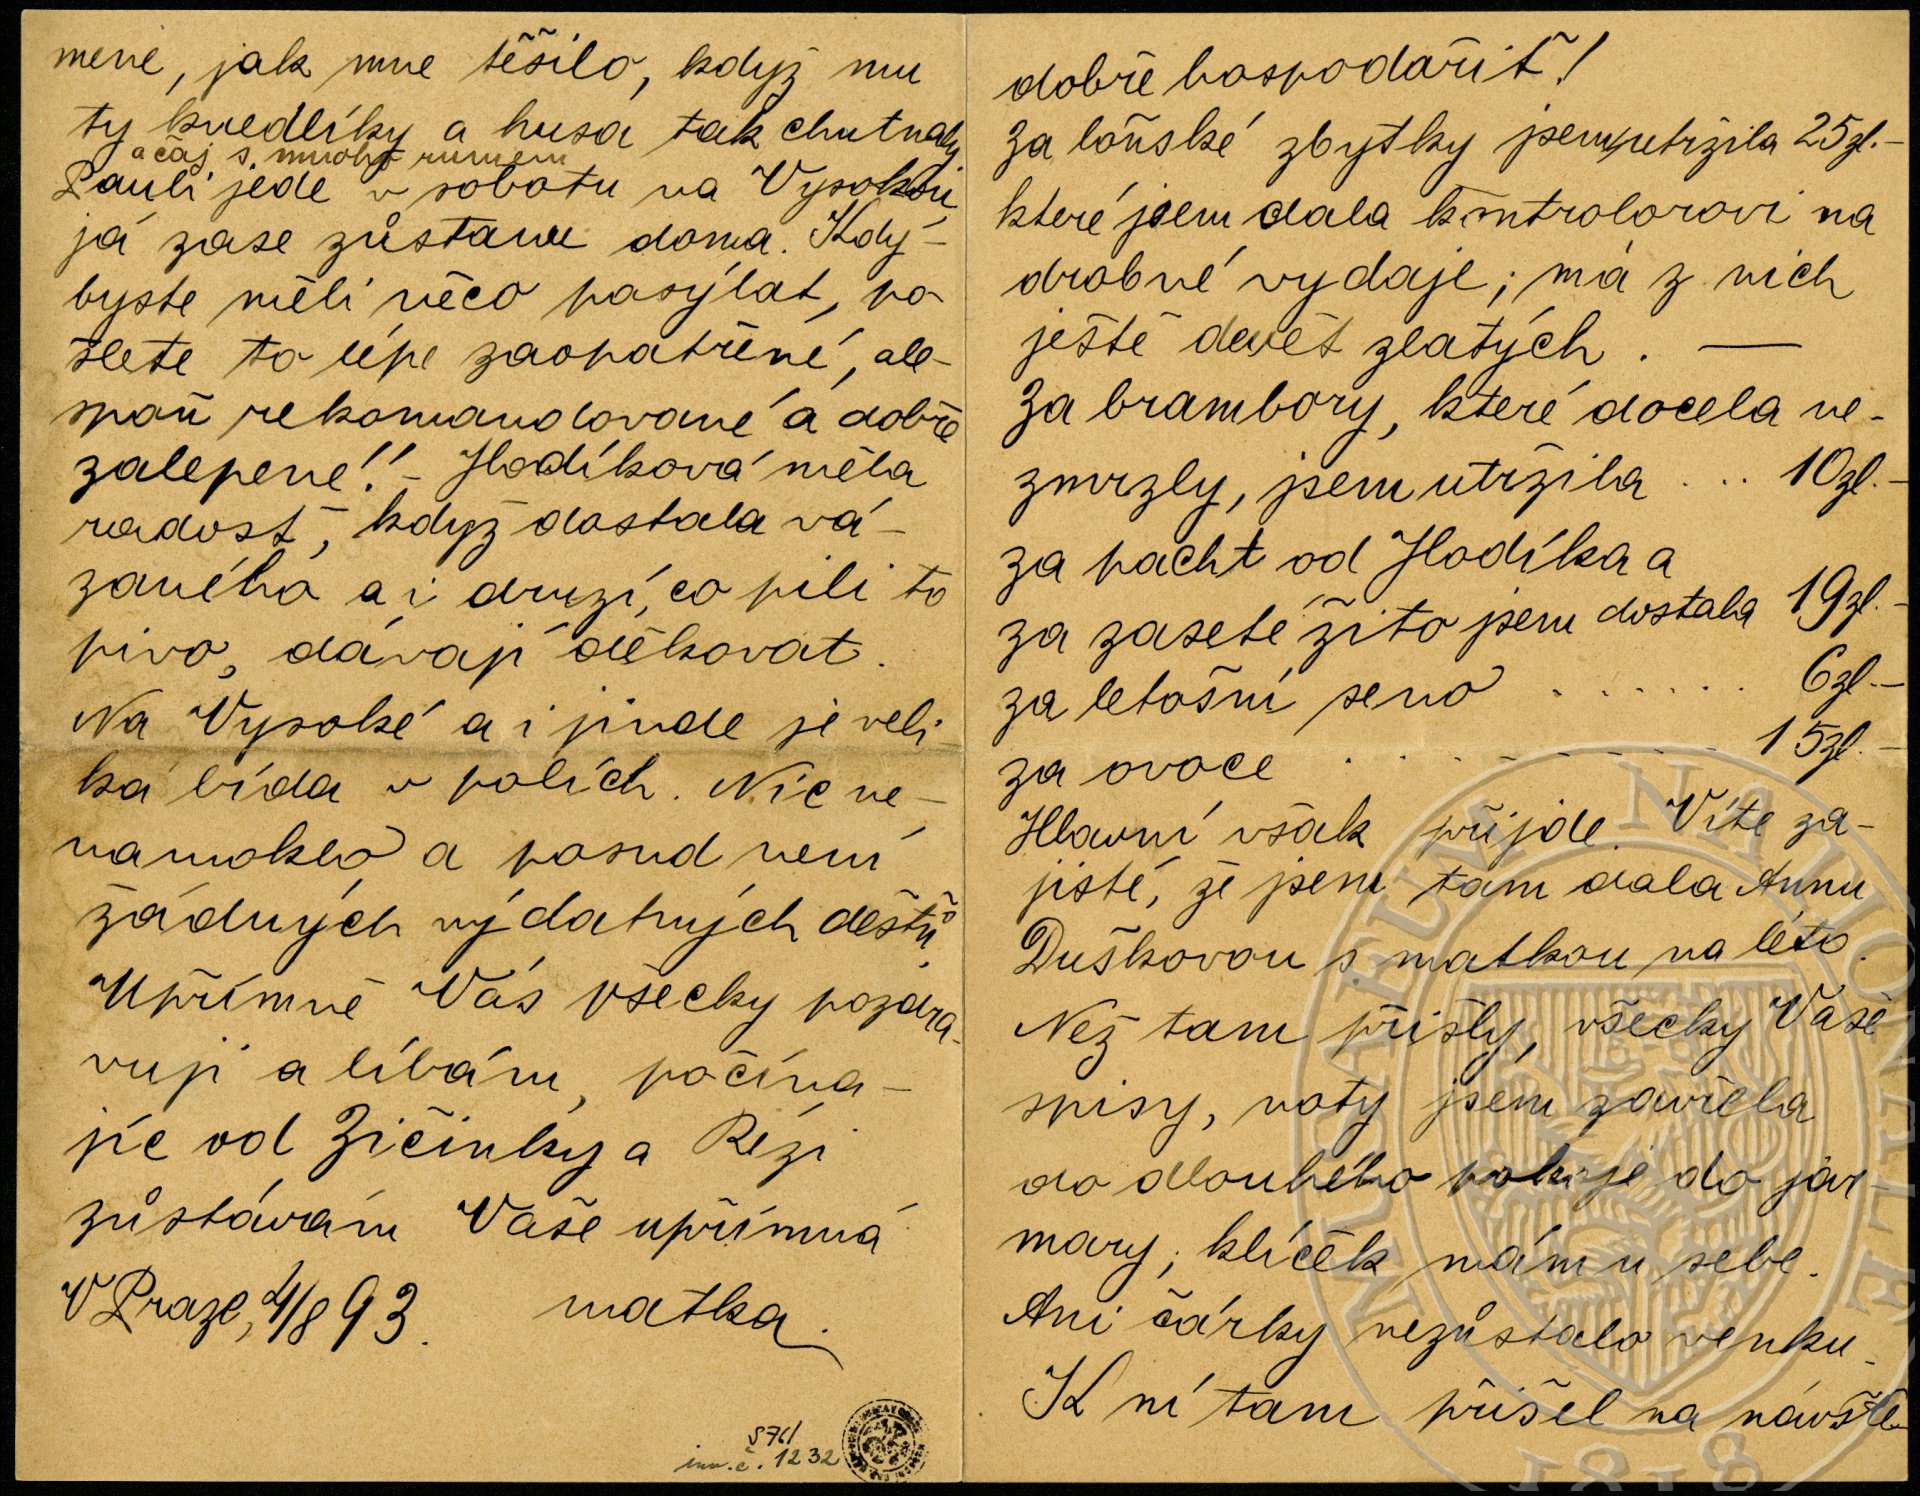 mene, jak mne těšilo, když mu
ty knedlíky a husa tak chutnaly
a čaj s mnoho rumem
Pauli jede v sobotu na Vysokou,
já zase zůstanu doma. Kdy-
byste měli něco posýlat, po-
šlete to lépe zaopatřéné, ale-
spoň rekomandované a dobře
zalepené!! – Hodíková měla
radost, když dostala vá-
zaného a i druzí, co pili to
pivo, dávají děkovat.
Na Vysoké a i jinde je veli-
ká bída v polích. Nic ne-
namoklo a posud není
žádných vydatných deštů.
Upřímně Vás všecky pozdra-
vuji a líbám, počína-
jíc od Zičinky a Rézi
zůstávám Vaše upřímná
V Praze, 4/8 93. matka.
S 76/
inv. č. 1232
dobře hospodařit!
Za loňské zbytky jsem utržila 25 zl. –
které jsem dala kontrolorovi na
drobné vydaje; má z nich
ještě devět zlatých. —
Za brambory, které docela ne-
zmrzly, jsem utržila ... 10 zl. –
za pacht od Hodíka a
za zaseté žito jsem dostala 19 zl. –
za letošní seno . . . . . . 6 zl. –
za ovoce . . . . . . . . 15 zl. –
Hlavní však přijde. Víte za-
jisté, že jsem tam dala Annu
Duškovou s matkou na léto.
Než tam přišly, všecky Vaše
spisy, noty jsem zavřela
do dlouhého pokoje do jar-
mary, klíček mám u sebe.
Ani čárky nezůstalo venku.
K ní tam přišel na návště-
MUSAEUM NATIONALE
1818